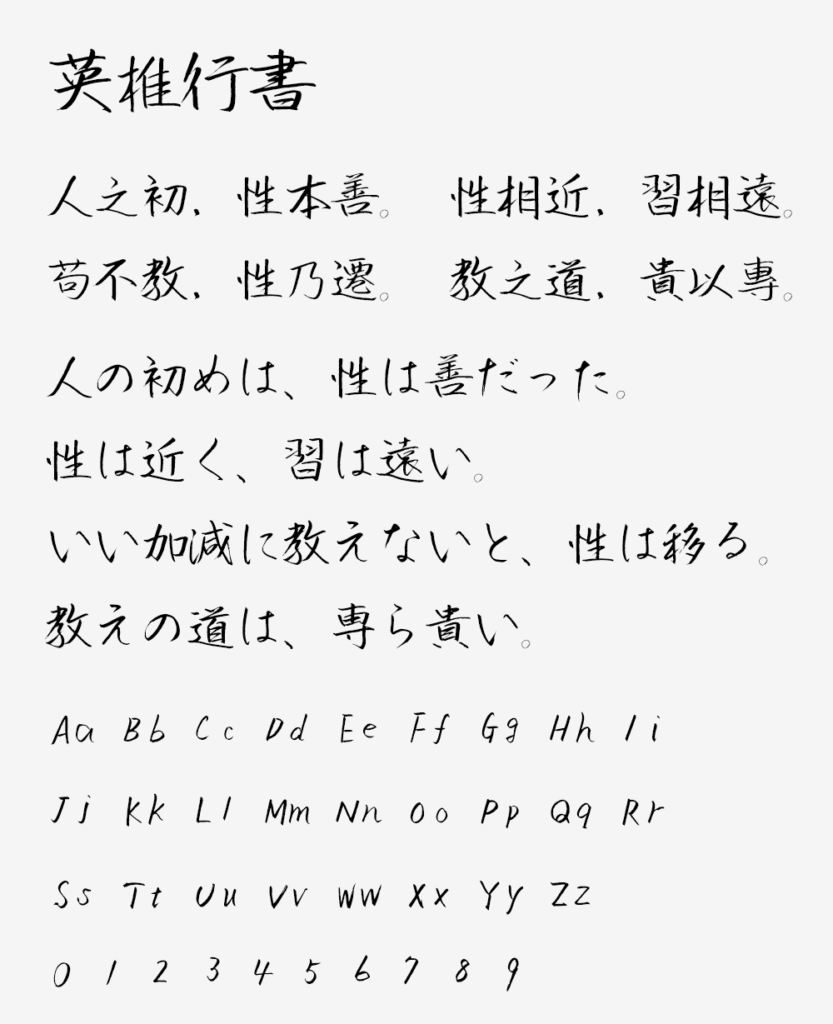 英椎行書
人之初，性本善。　性相近，習相遠。
苟不教，性乃遷。　教之道，貴以專。
人の初めは、性は善だった。
性は近く、習は遠い。
いい加減に教えないと、性は移る。
教えの道は、専ら貴い。
Aa Bb Cc Dd Ee Ff Gg Hh Ii
Jj Kk Ll Mm Nn Oo Pp Qq Rr
Ss Tt Uu Vv Ww Xx Yy Zz
0 1 2 3 4 5 6 7 8 9